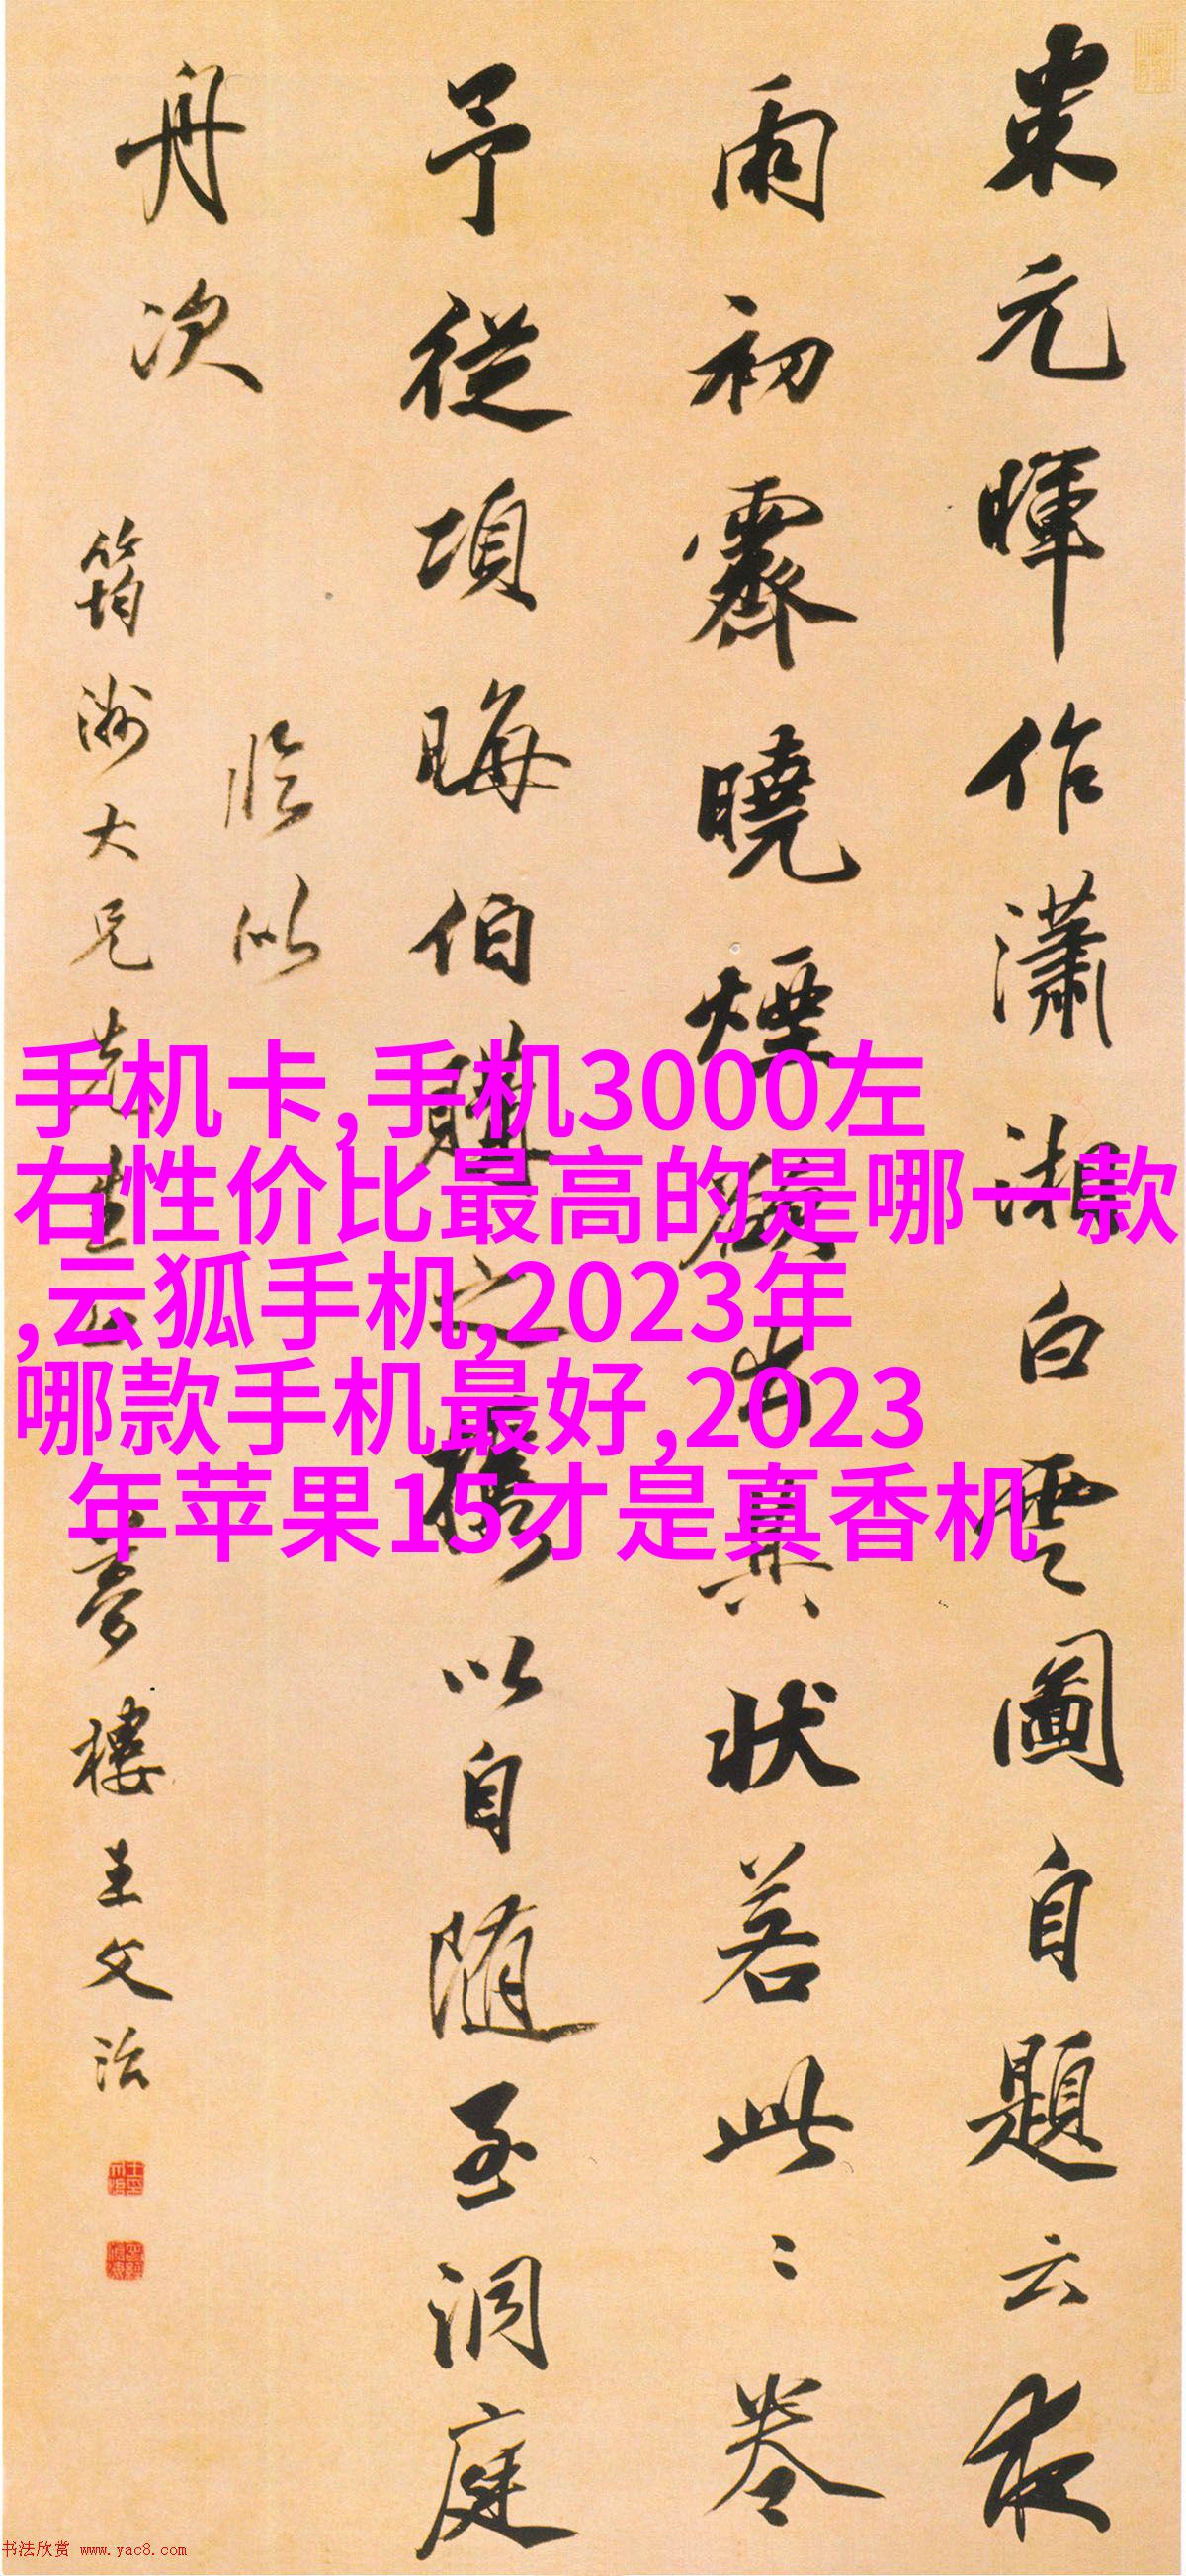 米元暉作瀟湘白雲圖自題云夜
雨初霽曉煙欲出其狀若此此卷
予從項晦伯購之攜以自随至洞庭
舟次
臨似
筠洲大兄先生 夢樓王文治
手机卡,手机3000左
右性价比最高的是哪一款
,云狐手机,2023年
哪款手机最好,2023
年苹果15才是真香机
书法欣赏 www.yac8.com